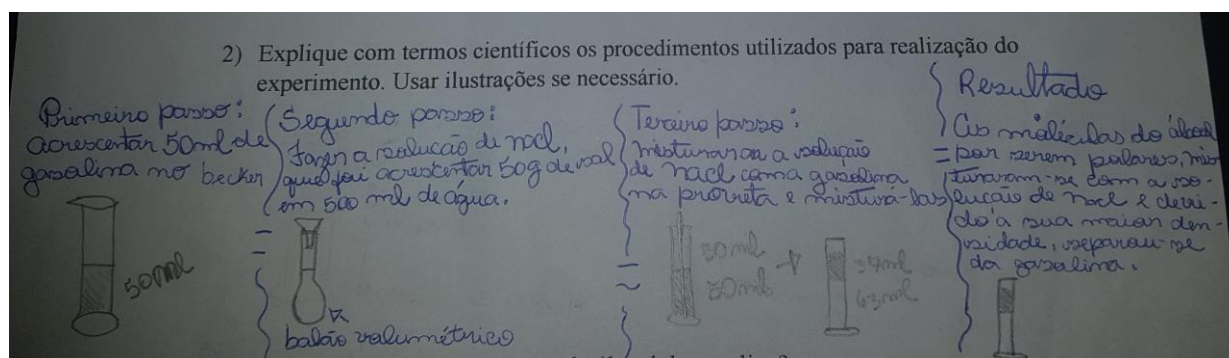 2) Explique com termos científicos os procedimentos utilizados para realização do
experimento. Usar ilustrações se necessário.
Primeiro passo:
acrescentar 50ml de
gasolina no becker
50ml
Segundo passo:
fazer a solução de nacl,
que foi acrescentar 50g de sal
em 500 ml de água.
balão volumétrico
Terceiro passo:
misturaran a solução
de nacl com a gasolina
na proveta e misturá-las
50 ml
50ml
+
37ml
63ml
Resultado
As moléculas do álcool
= por serem polares, mis
turaram-se com a so-
lução de nacl e devi-
do a sua maior den-
sidade, separou-se
da gasolina.